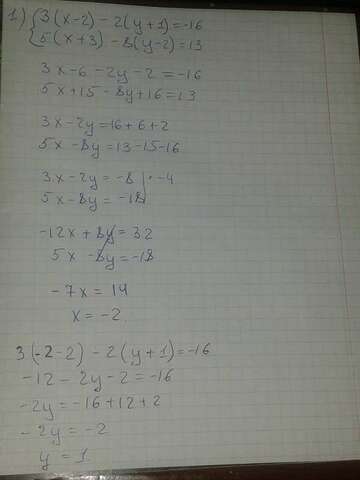 1) { 3(x-2) - 2(y+1) = -16
5(x+3) - 8(y-2) = 13
3x - 6 - 2y - 2 = -16
5x + 15 - 8y + 16 = 13
3x - 2y = 16 + 6 + 2
5x - 8y = 13 - 15 - 16
3x - 2y = -8 | · -4
5x - 8y = -18
-12x + 8y = 32
5x - 8y = -18
-7x = 14
x = -2
3(-2-2) - 2(y+1) = -16
-12 - 2y - 2 = -16
-2y = -16 + 12 + 2
-2y = -2
y = 1